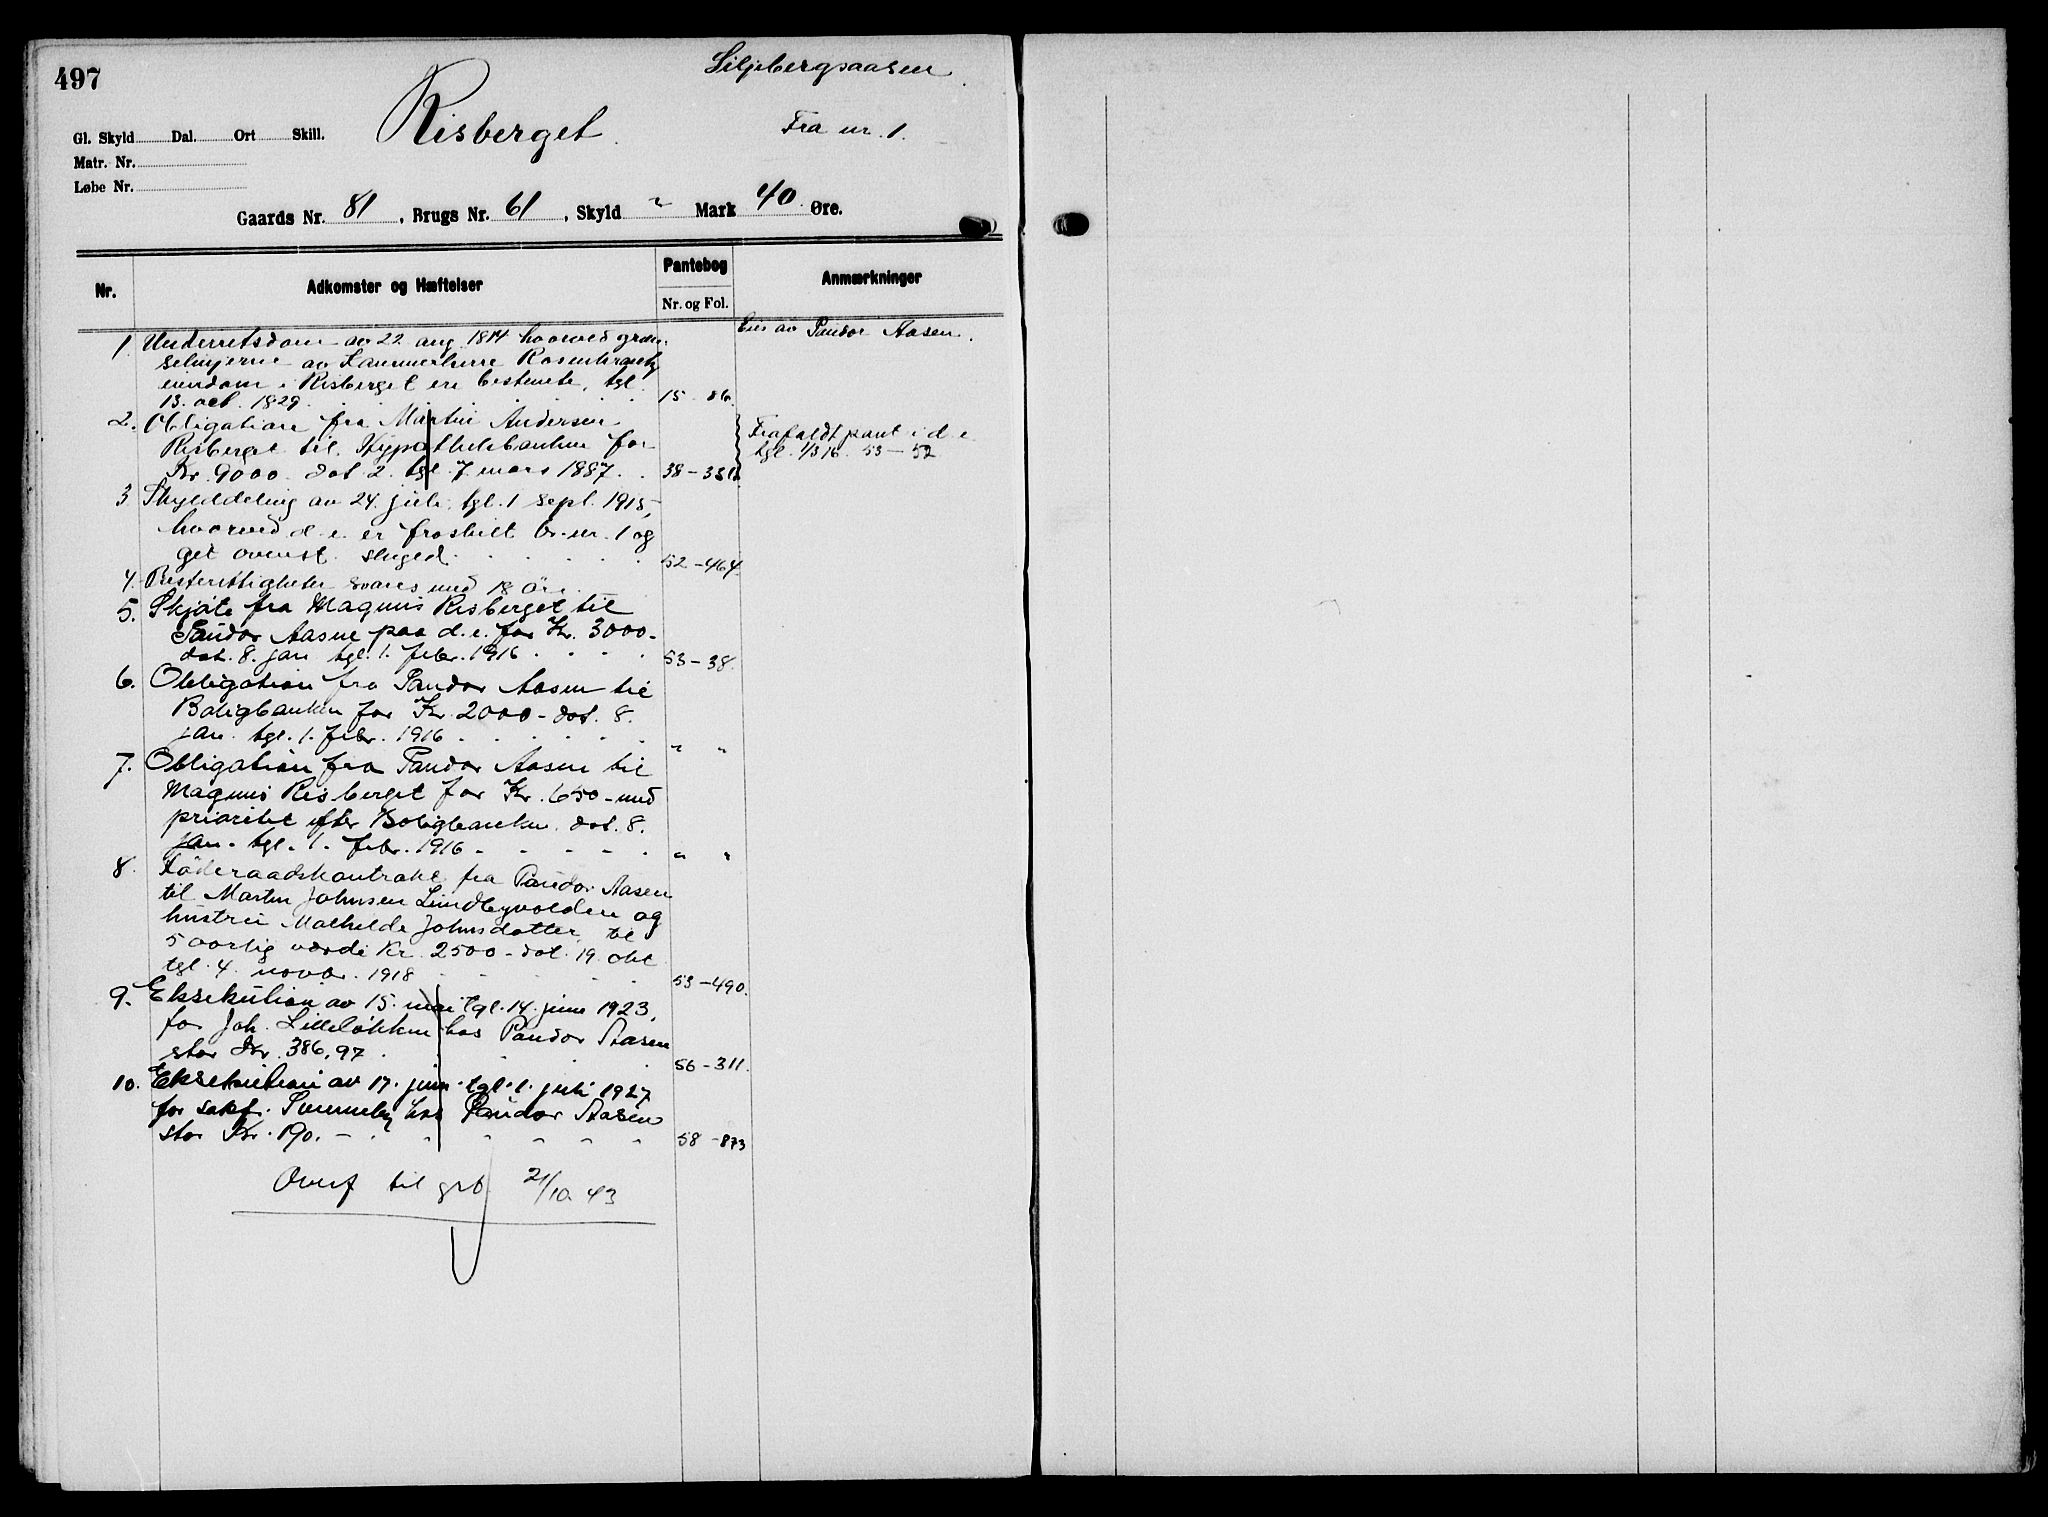 497
Siljebergsaasen
Risberget
Fra nr. 1.
Gl. Skyld Dal. Ort Skill.
Matr. Nr.
Løbe Nr.
Gaards Nr. 81, Brugs Nr. 61, Skyld " Mark 40 Øre.
Nr. Adkomster og Hæftelser Pantebog Nr. og Fol. Anmærkninger
Eies av Pandor Aasen.
1. Underretsdom av 22 aug. 1814 hvorved græn-
selinjerne av Kammerherre Rosenkrantz
eiendom i Risberget ere bestemte, tgl.
13. oct. 1829. 15 - 86.
2. Obligation fra Martin Andersen
Risberget til Hypothekbanken for
Kr. 9000 dat 2. tgl. 7. mars 1887. 38 - 381.
Frafaldt pant i d. e.
tgl. 1/3 16. 53 - 52
3. Skylddeling av 24. juli, tgl. 1 sept. 1915,
hvorved d. e. er fraskilt br. nr. 1 og
git ovenst. skyld. 52 - 464.
4. Presterettigheter svares med 18 øre.
5. Skjøte fra Magnus Risberget til
Pandor Aasen paa d. e. for Kr. 3000 -
dat. 8. jan tgl. 1. febr. 1916 53 - 38.
6. Obligation fra Pandor Aasen til
Boligbanken for Kr. 2000 - dat. 8.
jan. tgl. 1. febr. 1916 " "
7. Obligation fra Pandor Aasen til
Magnus Risberget for Kr. 650 - med
prioritet efter Boligbanken. dat. 8.
jan. tgl. 1. febr. 1916 - " "
8. Føderaadskontrakt fra Pandor Aasen
til Martin Johnsen Lindbyvolden og
hustru Mathilde Johnsdatter, til
5 aarlig værdi Kr. 2500 - dat. 19. okt
tgl. 4. novbr. 1918 53 - 490.
9. Eksekution av 15. mai tgl. 14. juni 1923,
for Joh. Lilleløkken hos Pandor Aasen
stor Kr. 386,97. 56 - 311.
10. Eksekution av 17. juni tgl. 1. juli 1927
for sakf. hos Pandor Aasen
stor Kr. 190. - 58 - 873
Overf til grb. 21/10 43